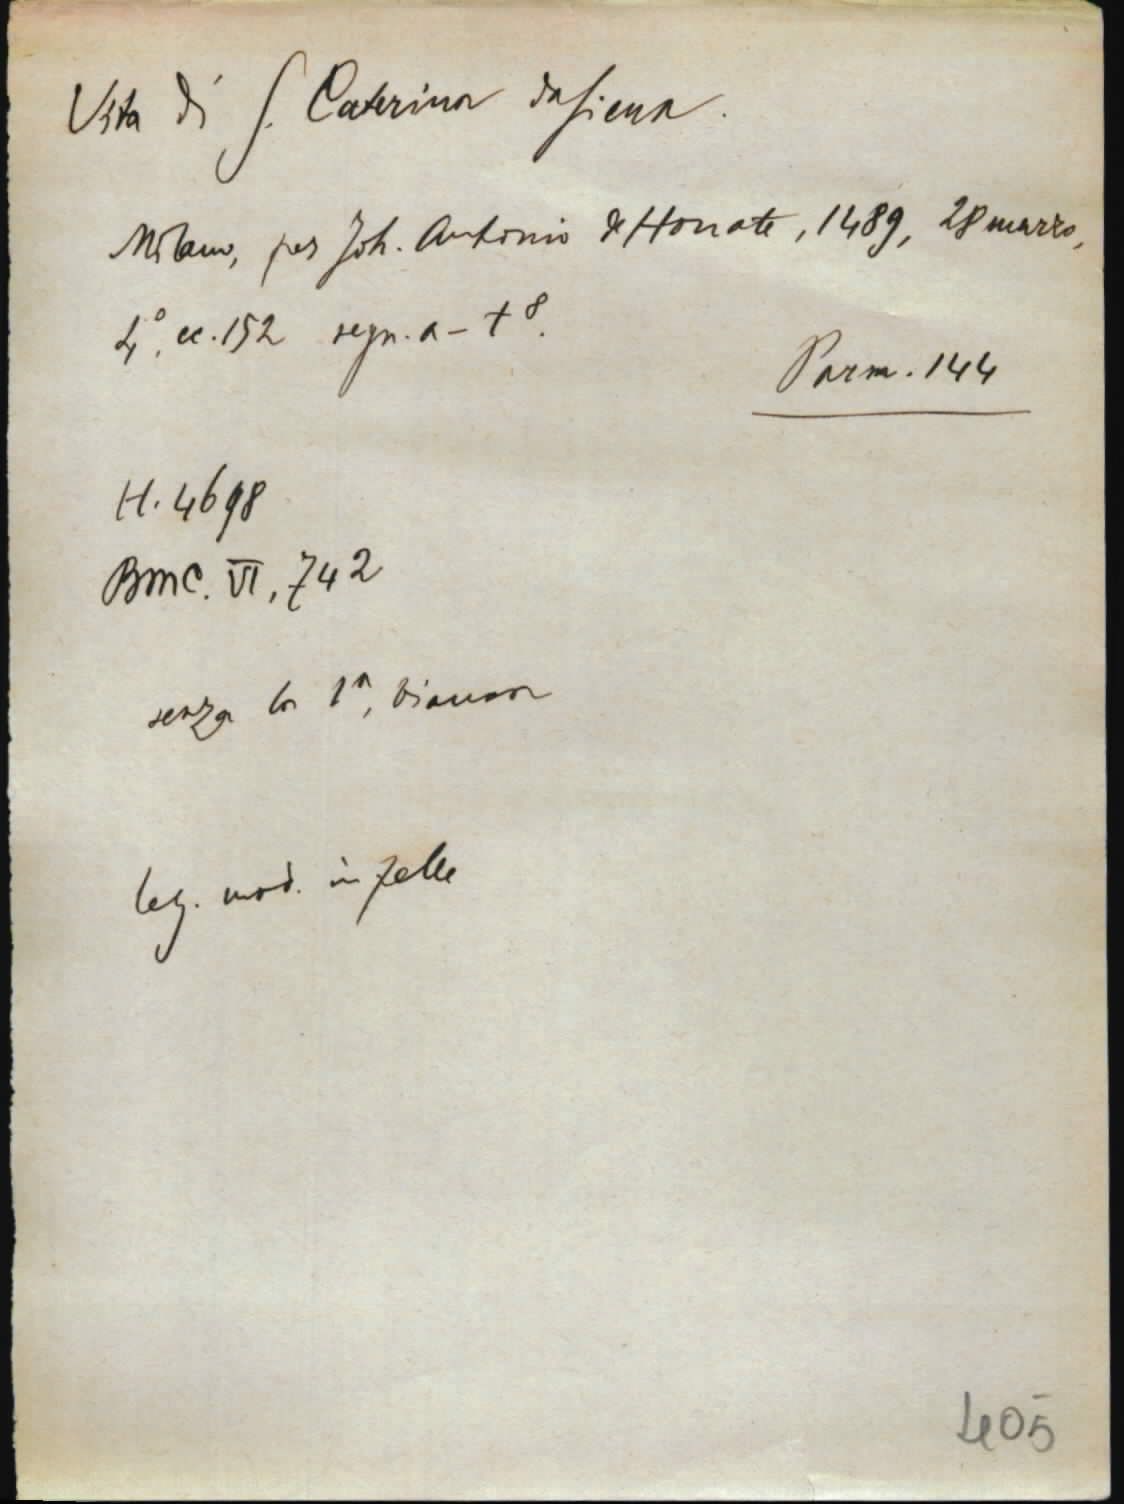 Vita di S. Caterina da Siena.
Milano, per Joh. Antonio de Honate, 1489, 28 marzo,
4°, cc. 152 segn. a – t⁸.
Parm. 144
H. 4698
BMC. VI, 742
senza la 1ª, bianca
leg. mod. in pelle
405